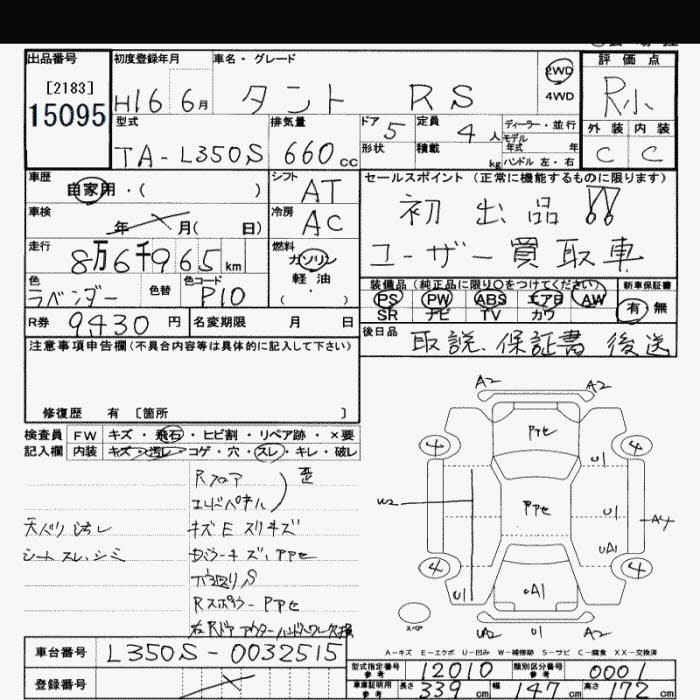 出品番号
[2183]
15095
初度登録年月
H16 6月
車名・グレード
タント RS
2WD
4WD
評価点
R小
外装 内装
C C
型式
TA-L350S
排気量
660cc
ドア 5
形状
定員 4人
積載 kg
ディーラー・並行
モデル
年式 年
ハンドル 左・右
車歴
自家用・( )
シフト
AT
車検
年 月( 日)
冷房
AC
走行
8万6千965km
燃料
ガソリン
軽油
( ・ )
色
ラベンダー
色替
色コード
P10
R券 9,430円
名変期限 月 日
セールスポイント(正常に機能するものに限ります)
初出品!!
ユーザー買取車
装備品(純正品に限り○をつけてください)
PS PW ABS エアB AW
SR ナビ TV カワ
新車保証書
有 無
後日品
取説、保証書 後送
注意事項申告欄(不具合内容等は具体的に記入して下さい)
修復歴 有 〔箇所 〕
検査員
記入欄
FW キズ・飛石・ヒビ割・リペア跡・×要
内装 キズ・汚レ・コゲ・穴・スレ・キレ・破レ
Rフロア
エンドパネル
歪
天ハリ汚レ
シートスレ、シミ
キズE スリキズ
Rスポイラー PPセ
A2 A2
4 4
PPセ
U1
W2
PPセ
U1
A4
UA1
4 4
U1
UA1
UA2 U1 A2
スペア
A-キズ E-エクボ U-凹み W-補修跡 S-サビ C-腐食 XX-交換済
車台番号 L350S-0032515
登録番号
型式指定番号
参考
12010
類別区分番号
参考
0001
車庫証明用
参考
長さ 339cm 幅 147cm 高さ 172cm